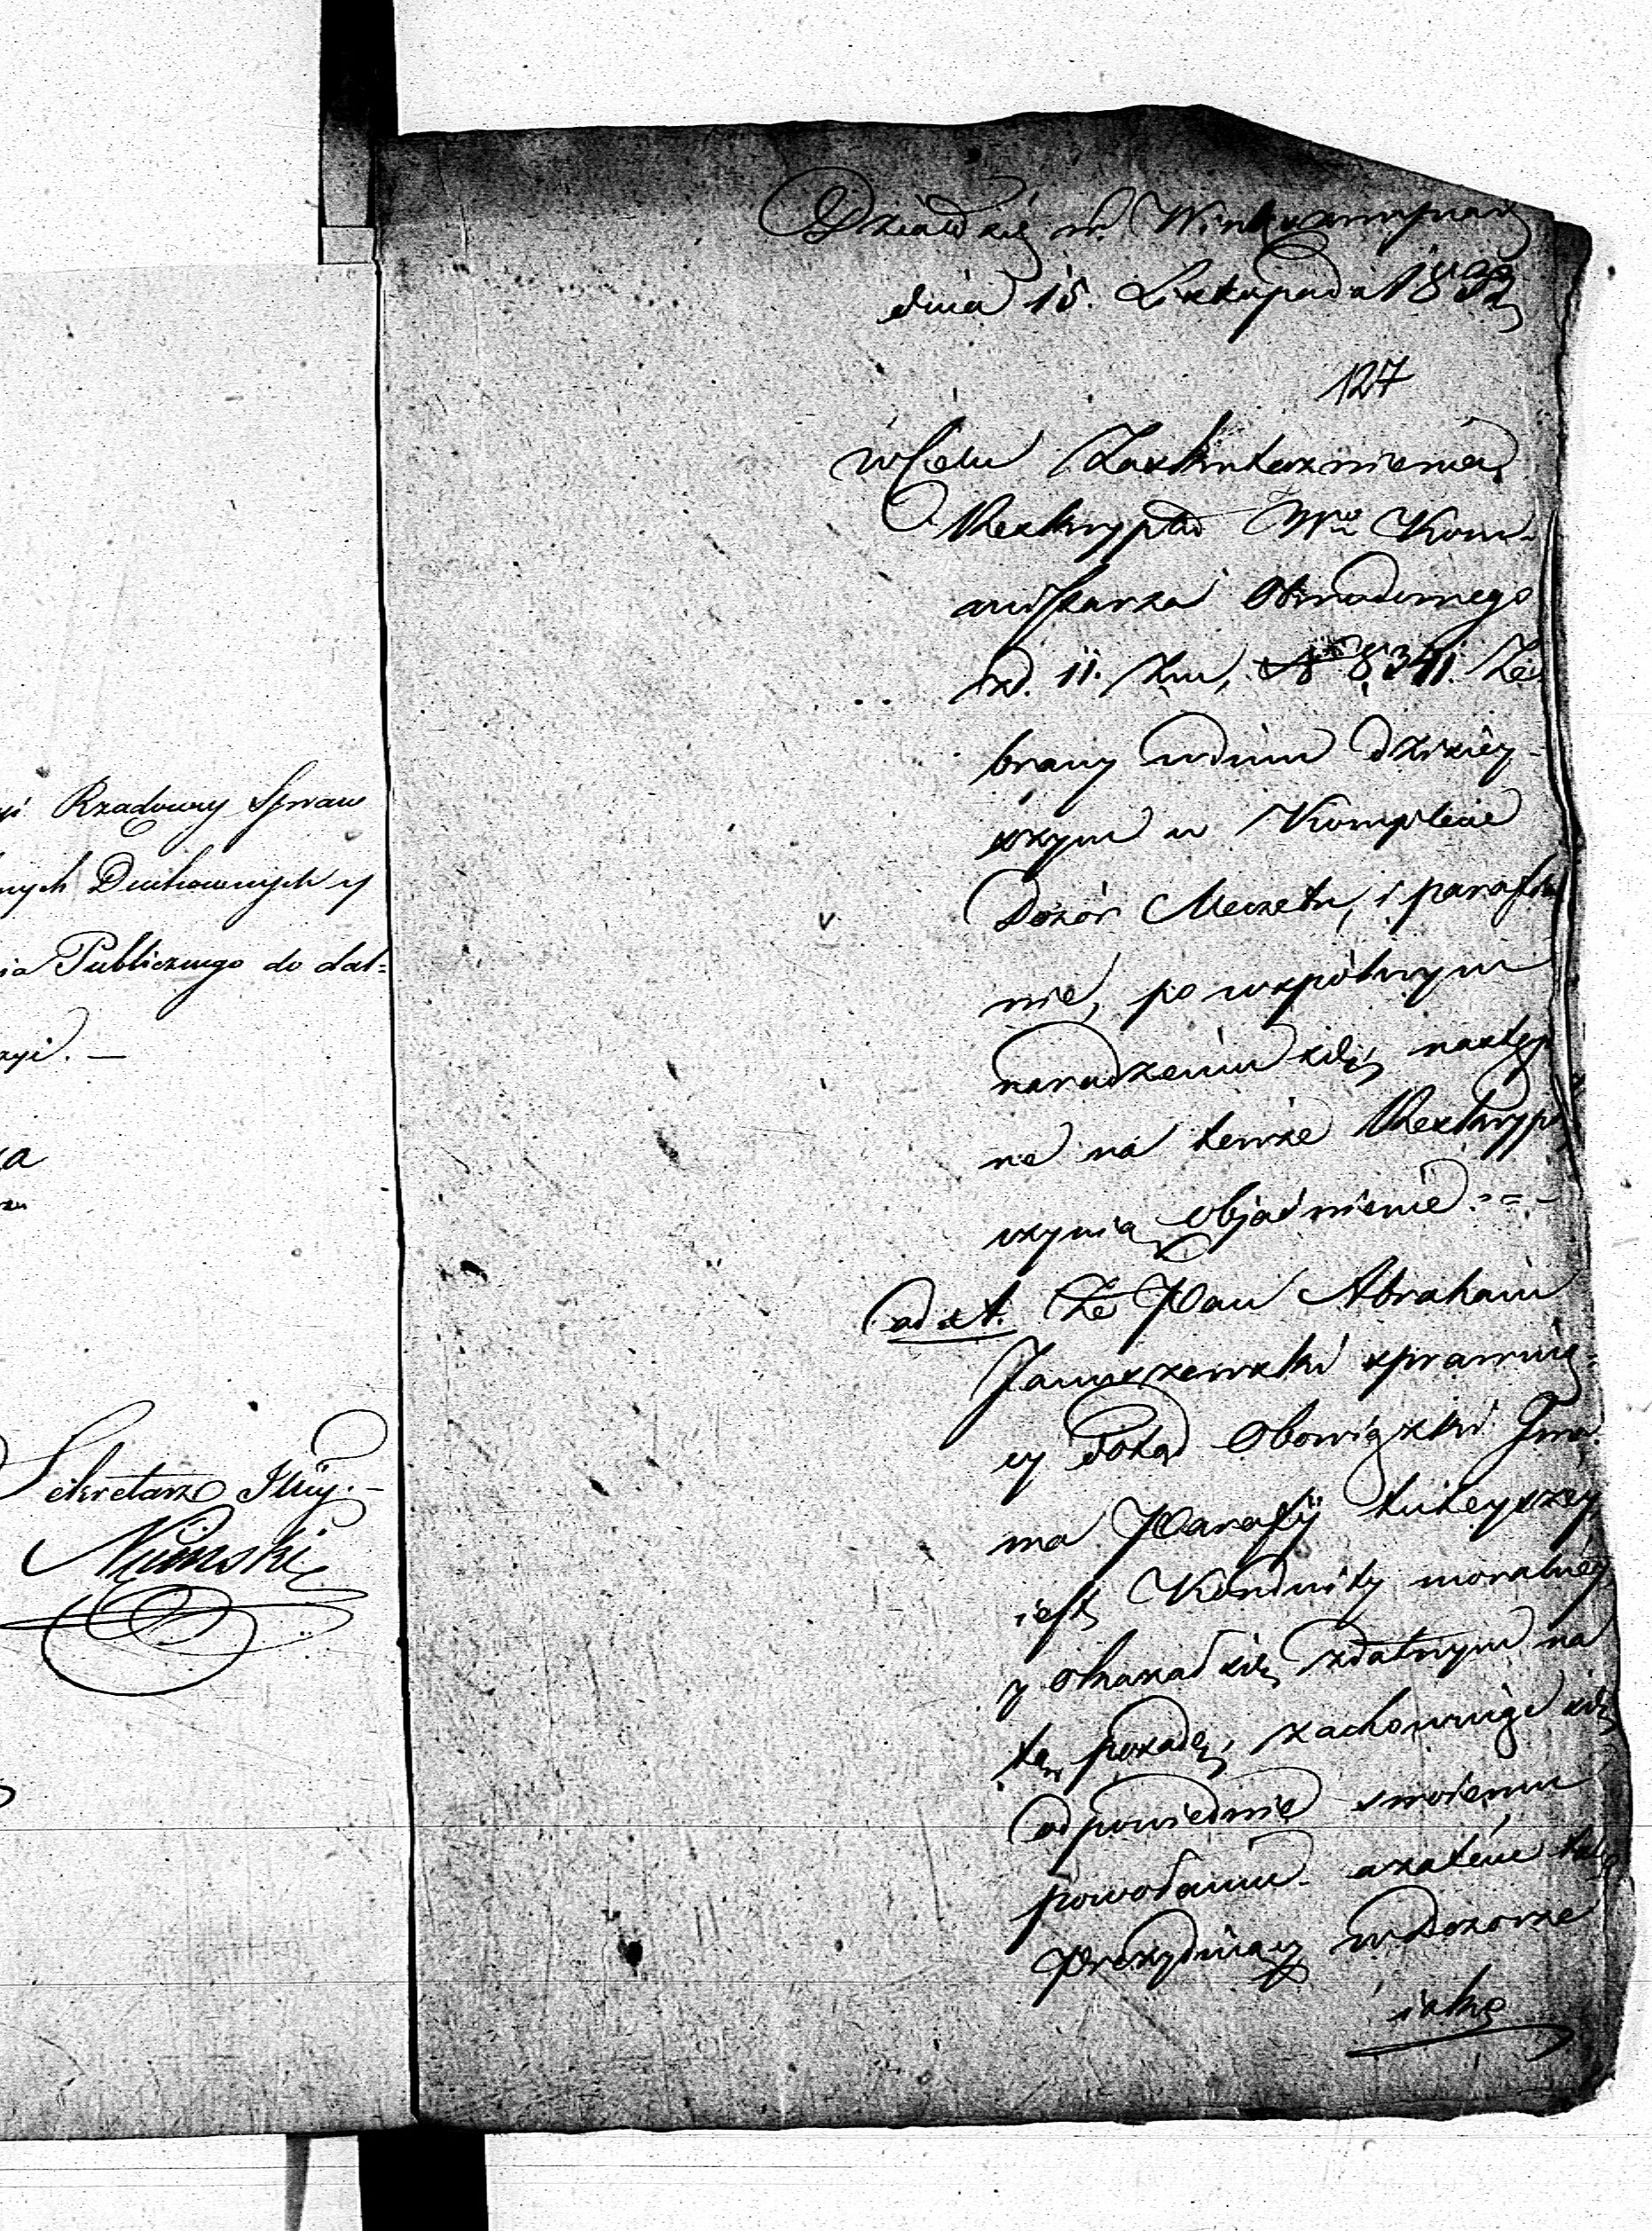 Rządowey Spraw
nych Duchownych y
ia Publicznego do dal=
zyi. —
Sekretarz Jlny. –
Działo się w Winksznupiach
dnia 15. Listopada 1832
127
w Celu Zaskutecznienia
Reskryptu Wgo Kom-
missarza Obwodowego
z d. 11. t. m. N 8341. Ze
brany w dniu dzisiey-
szym w Komplecie
Dozór Meczetu, i parafia
nie, po wspólnym
naradzeniu się, następ
ne na tenże Reskrypt
czynią objaśnienie. = = -
ad 1. Że Pan Abraham
Januszewski sprawuią-
cy dotąd Obowiązki Jma
ma Parafij tuteyszey
iest Konduity moralney,
y okazał się zdatnym na
tę posadę, zachowuiąc się
odpowiednie swoiemu
powołaniu. a zatem
Prezyduiący w Dozorze
iako